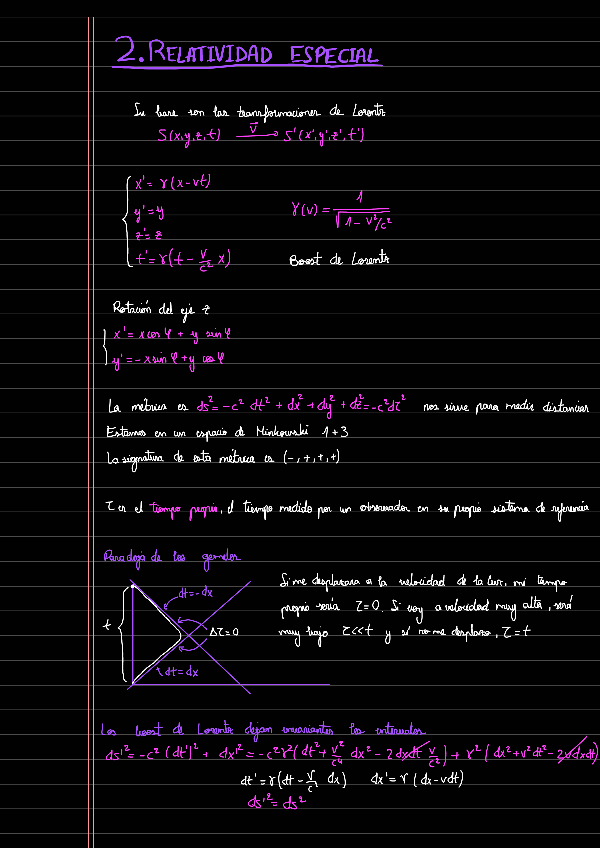 2. RELATIVIDAD ESPECIAL
Su base son las transformaciones de Lorentz
S(x,y,z,t) —v⃗→ S'(x',y',z',t')
x' = γ(x-vt)
y' = y
z' = z
t' = γ(t - v/c² x)
γ(v) = 1/√(1 - v²/c²)
Boost de Lorentz
Rotación del eje z
x' = x cos φ + y sin φ
y' = -x sin φ + y cos φ
La métrica es ds² = -c² dt² + dx² + dy² + dz² = -c²dτ² nos sirve para medir distancias
Estamos en un espacio de Minkowski 1+3
La signatura de esta métrica es (-,+,+,+)
τ es el tiempo propio, el tiempo medido por un observador en su propio sistema de referencia
Paradoja de los gemelos
Si me desplazara a la velocidad de la luz, mi tiempo
propio sería τ=0. Si voy a velocidad muy alta, será
muy bajo τ<<t y si no me desplazo, τ=t
dt=-dx
t
Δτ=0
dt=dx
Los boost de Lorentz dejan invariantes los intervalos
ds'² = -c² (dt')² + dx'² = -c²γ²(dt² + v²/c⁴ dx² - 2 dxdt v/c²) + γ²(dx² + v²dt² - 2vdxdt)
dt' = γ(dt - v/c² dx) dx' = γ(dx - vdt)
ds'² = ds²